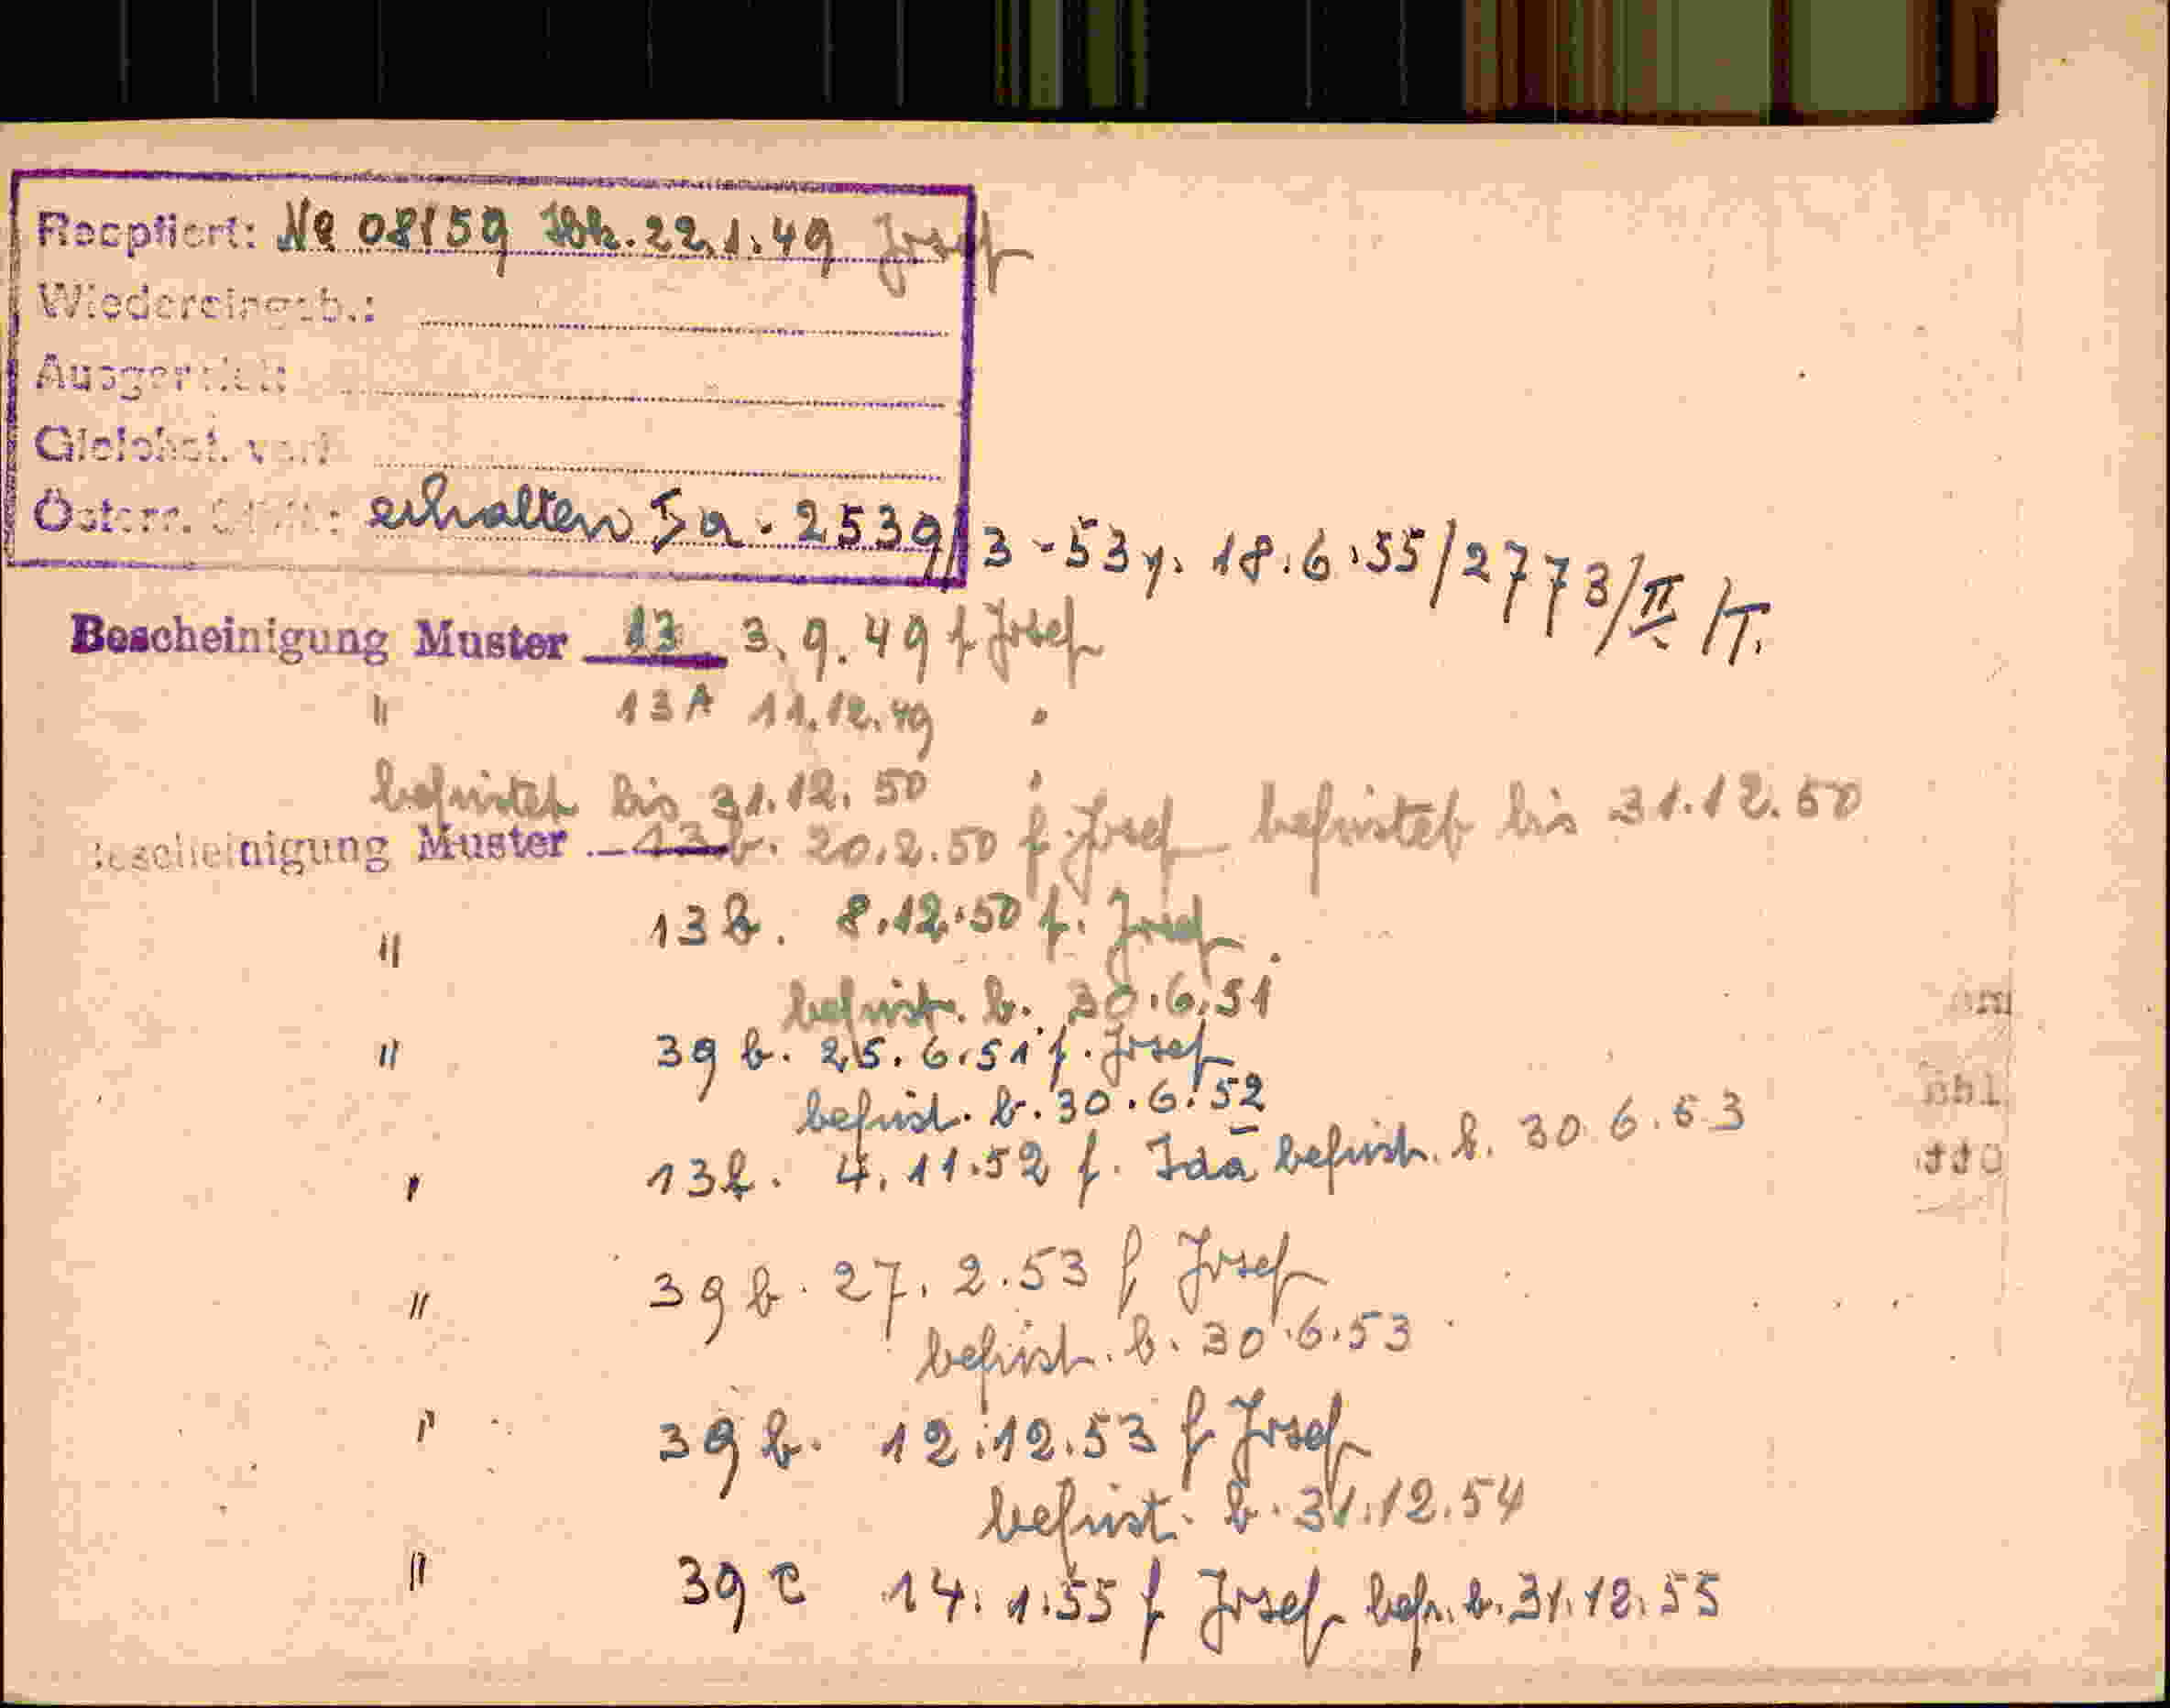 Recptiert: No 08159 Idk. 22.1.49 Josef
Wiedereingeb.:
Gleichst. verl
Österr. erhalten Ia. 2539/3-53 v. 18.6.55/2773/II/T.
Bescheinigung Muster 13 3.9.49 f Josef
" 13A 11.12.49 "
befristet bis 31.12.50 "
Bescheinigung Muster 13b. 20.2.50 f. Josef befristet bis 31.12.50
" 13b. 8.12.50 f. Josef.
befrist. b. 30.6.51
" 39b. 25.6.51 f. Josef
befrist. b. 30.6.52
" 13b. 4.11.52 f. Ida befrist. b. 30.6.53
" 39b. 27.2.53 f Josef
befrist. b. 30.6.53
" 39b. 12.12.53 f Josef
befrist. b. 31.12.54
" 39c 14.1.55 f Josef befr. b. 31.12.55